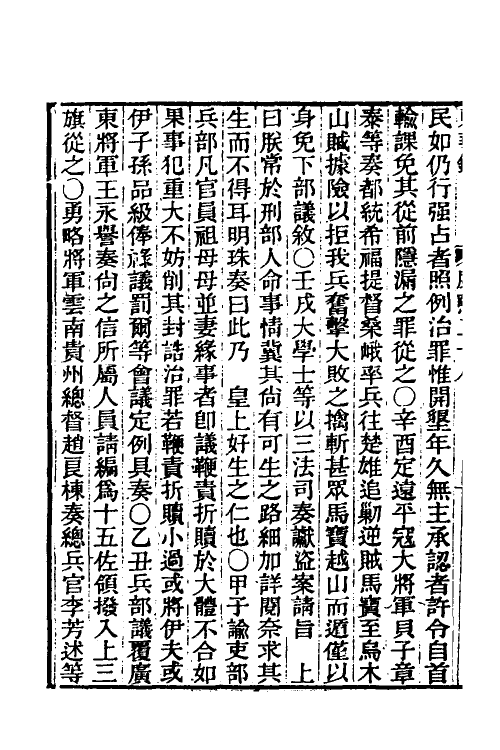 民如仍行强占者照例治罪惟開墾年久無主承認者許令自首
輸課免其從前隱漏之罪從之〇辛酉定遠平寇大將軍貝子章
泰等奏都統希福提督桑峨率兵往楚雄追勦逆賊馬寶至烏木
山賊據險以拒我兵奮擊大敗之擒斬甚眾馬寶越山而遁僅以
身免下部議敘〇壬戌大學士等以三法司奏讞盜案請旨　上
曰朕常於刑部人命事情冀其尙有可生之路細加詳閱奈求其
生而不得耳明珠奏曰此乃　皇上好生之仁也〇甲子諭吏部
兵部凡官員祖母母並妻緣事者卽議鞭責折贖於大體不合如
果事犯重大不妨削其封誥治罪若鞭責折贖小過或將伊夫或
伊子孫品級俸祿議罰爾等會議定例具奏〇乙丑兵部議覆廣
東將軍王永譽奏尙之信所屬人員請編爲十五佐領撥入上三
旗從之〇勇略將軍雲南貴州總督趙良棟奏總兵官李芳述等